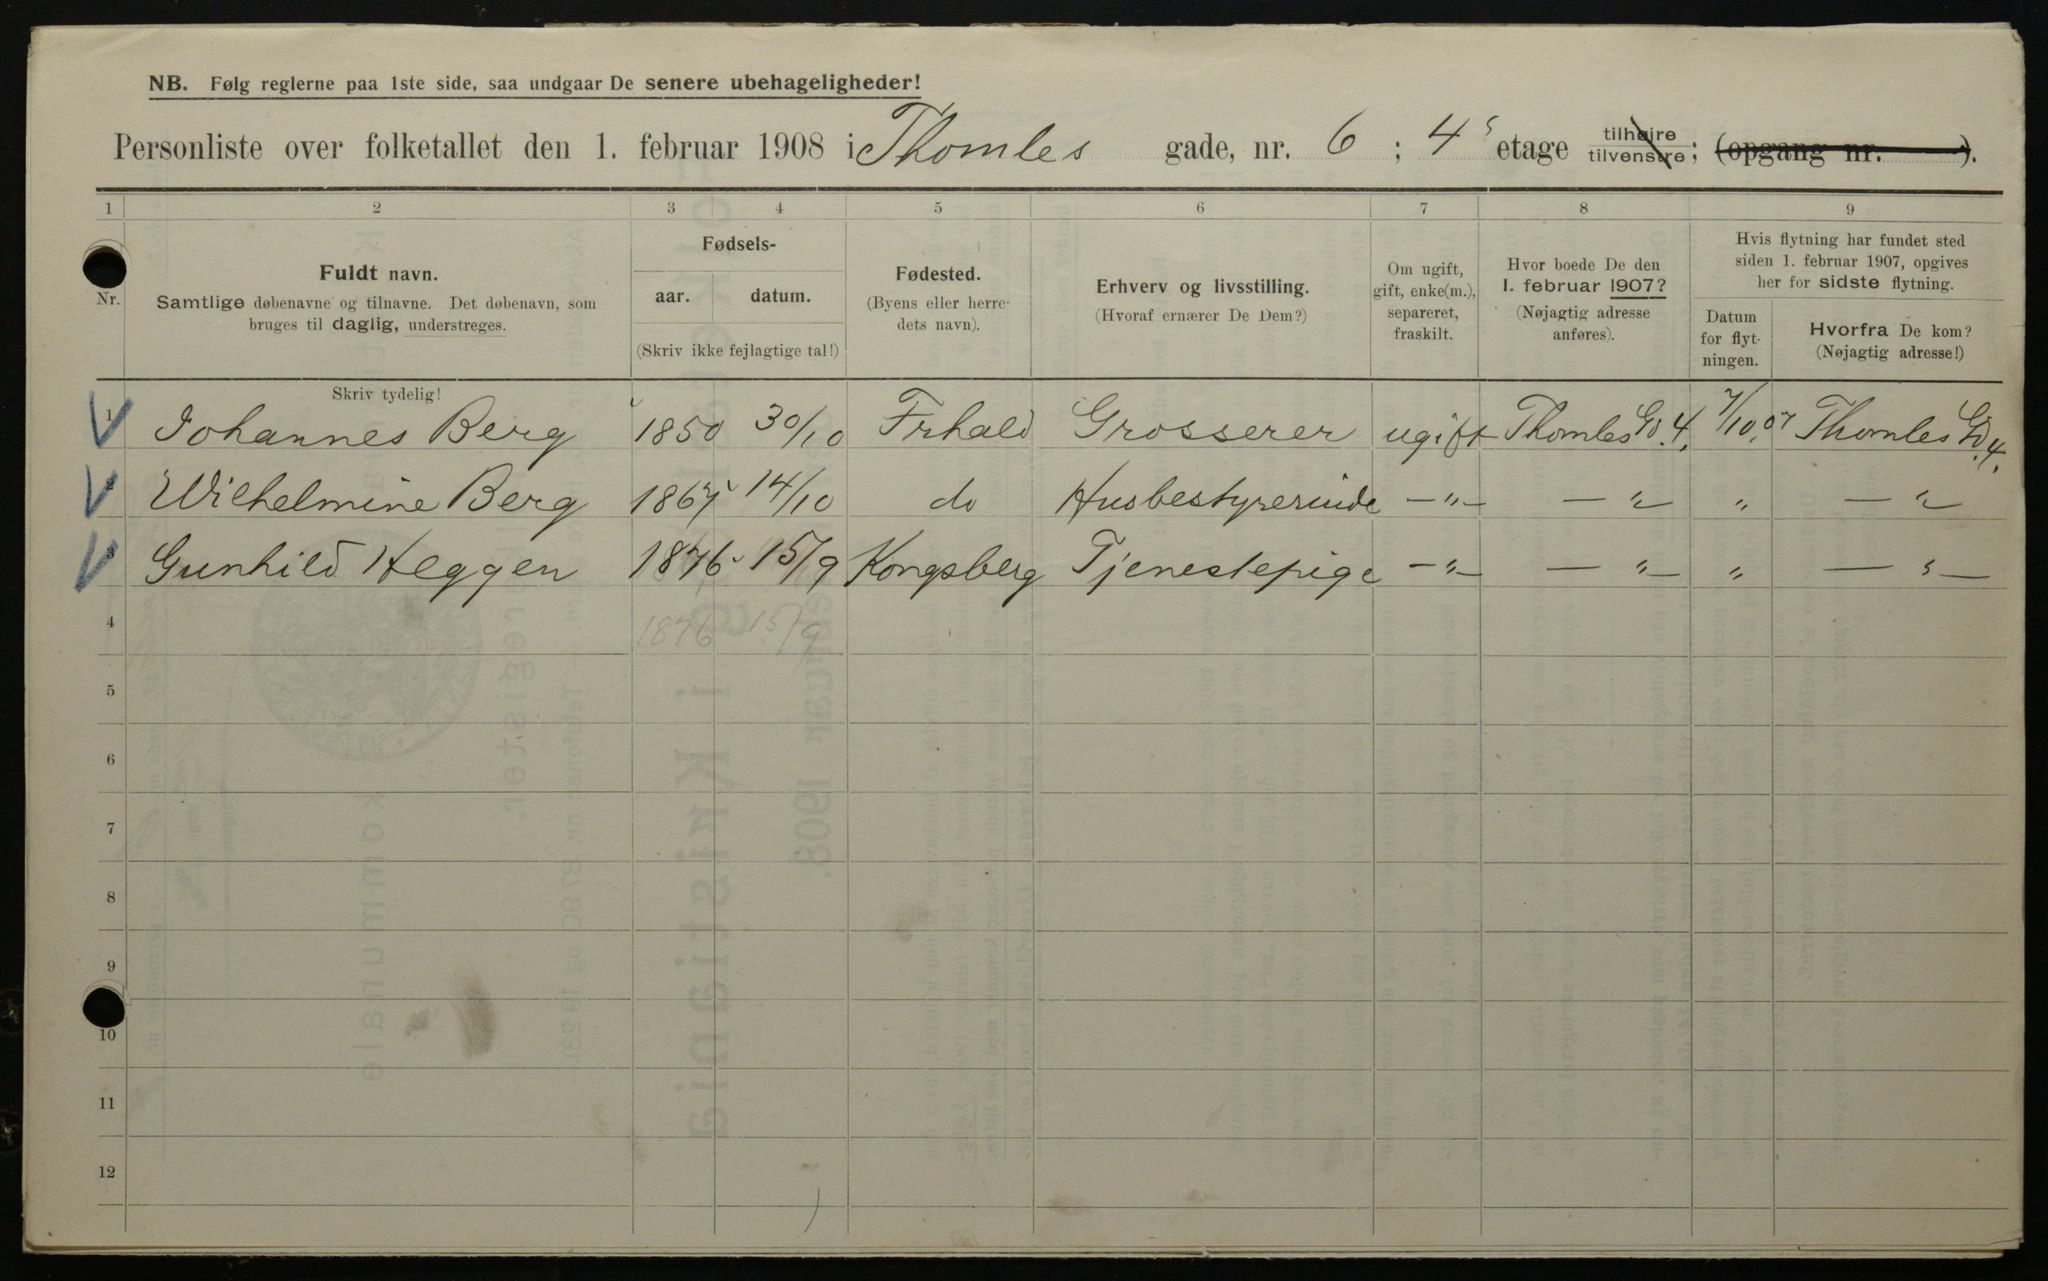 NB. Følg reglerne paa 1ste side, saa undgaar De senere ubehageligheder!
Personliste over folketallet den 1. februar 1908 i Thomles gade, nr. 6 ; 4 etage tilhøjre tilvenstre ; (opgang nr. ).
1 2 3 4 5 6 7 8 9
Nr.
Fuldt navn.
Samtlige døbenavne og tilnavne. Det døbenavn, som
bruges til daglig, understreges.
Fødsels-
aar. datum.
(Skriv ikke fejlagtige tal!)
Fødested.
(Byens eller herre-
dets navn).
Erhverv og livsstilling.
(Hvoraf ernærer De Dem?)
Om ugift,
gift, enke(m.),
separeret,
fraskilt.
Hvor boede De den
1. februar 1907?
(Nøjagtig adresse
anføres).
Hvis flytning har fundet sted
siden 1. februar 1907, opgives
her for sidste flytning.
Datum
for flyt-
ningen.
Hvorfra De kom?
(Nøjagtig adresse!)
Skriv tydelig!
1 Johannes Berg 1850 30/10 Frhald Grosserer ugift Thomles Gd. 4. 7/10.07 Thomles Gd. 4.
2 Wilhelmine Berg 14/10 do Husbestyrerinde —"— — " „ — "
3 Gunhild Heggen 1876 15/9 Kongsberg Tjenestepige —"— — "— „ — "—
4 1876 15/9
5
6
7
8
9
10
11
12